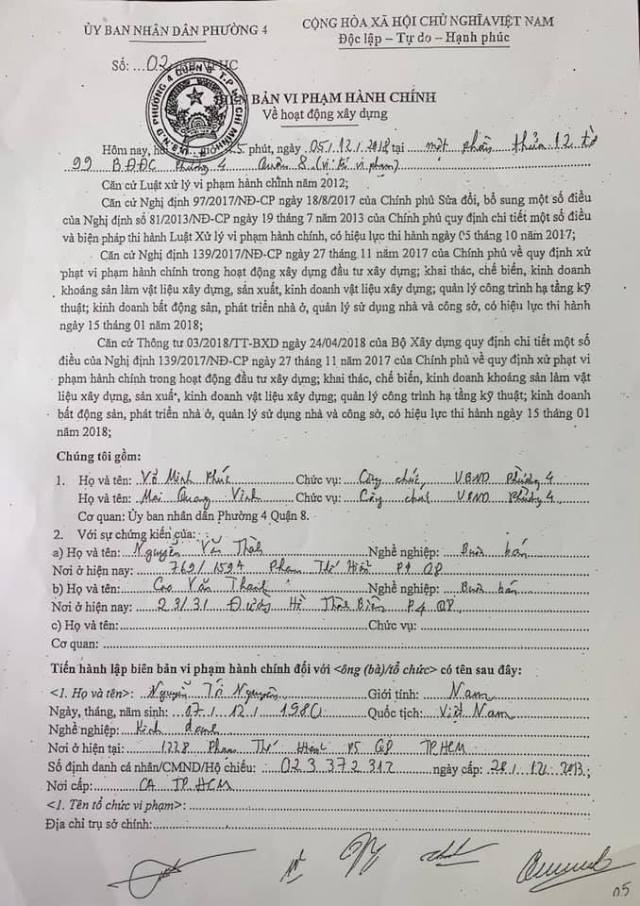 ỦY BAN NHÂN DÂN PHƯỜNG 4
CỘNG HÒA XÃ HỘI CHỦ NGHĨA VIỆT NAM
Độc lập – Tự do – Hạnh phúc
Số: 02
BẢN VI PHẠM HÀNH CHÍNH
Về hoạt động xây dựng
Hôm nay, hồi 5 phút, ngày 05/12/2018 tại một phần thửa 12 tờ
99 BĐĐC Phường 4 Quận 8 (vị trí vi phạm)
Căn cứ Luật xử lý vi phạm hành chính năm 2012;
Căn cứ Nghị định 97/2017/NĐ-CP ngày 18/8/2017 của Chính phủ Sửa đổi, bổ sung một số điều
của Nghị định số 81/2013/NĐ-CP ngày 19 tháng 7 năm 2013 của Chính phủ quy định chi tiết một số điều
và biện pháp thi hành Luật Xử lý vi phạm hành chính, có hiệu lực thi hành ngày 05 tháng 10 năm 2017;
Căn cứ Nghị định 139/2017/NĐ-CP ngày 27 tháng 11 năm 2017 của Chính phủ về quy định xử
phạt vi phạm hành chính trong hoạt động xây dựng đầu tư xây dựng; khai thác, chế biến, kinh doanh
khoáng sản làm vật liệu xây dựng, sản xuất, kinh doanh vật liệu xây dựng; quản lý công trình hạ tầng kỹ
thuật; kinh doanh bất động sản, phát triển nhà ở, quản lý sử dụng nhà và công sở, có hiệu lực thi hành
ngày 15 tháng 01 năm 2018;
Căn cứ Thông tư 03/2018/TT-BXD ngày 24/04/2018 của Bộ Xây dựng quy định chi tiết một số
điều của Nghị định 139/2017/NĐ-CP ngày 27 tháng 11 năm 2017 của Chính phủ về quy định xử phạt vi
phạm hành chính trong hoạt động đầu tư xây dựng; khai thác, chế biến, kinh doanh khoáng sản làm vật
liệu xây dựng, sản xuất, kinh doanh vật liệu xây dựng; quản lý công trình hạ tầng kỹ thuật; kinh doanh
bất động sản, phát triển nhà ở, quản lý sử dụng nhà và công sở, có hiệu lực thi hành ngày 15 tháng 01
năm 2018;
Chúng tôi gồm:
1. Họ và tên: Võ Minh Phúc Chức vụ: Công chức, UBND Phường 4
Họ và tên: Mai Quang Vinh Chức vụ: Công chức UBND Phường 4
Cơ quan: Ủy ban nhân dân Phường 4 Quận 8.
2. Với sự chứng kiến của:
a) Họ và tên: Nguyễn Văn Nghề nghiệp: Buôn bán
Nơi ở hiện nay: 769/ Phạm Thế Hiển P4 Q8
b) Họ và tên: Cao Văn Thanh Nghề nghiệp: Buôn bán
Nơi ở hiện nay: 23/31 Đường Hồ Thành Biên P4 Q8
c) Họ và tên: Chức vụ:
Cơ quan:
Tiến hành lập biên bản vi phạm hành chính đối với <ông (bà)/tổ chức> có tên sau đây:
<1. Họ và tên>: Nguyễn Trí Nguyên Giới tính: Nam
Ngày, tháng, năm sinh: 07/12/1980 Quốc tịch: Việt Nam
Nghề nghiệp: Kinh doanh
Nơi ở hiện tại: 1228 Phạm Thế Hiển P5 Q8 TP.HCM
Số định danh cá nhân/CMND/Hộ chiếu: 023372312 ngày cấp: 2013;
Nơi cấp: CA TP.HCM
<1. Tên tổ chức vi phạm>:
Địa chỉ trụ sở chính:
05